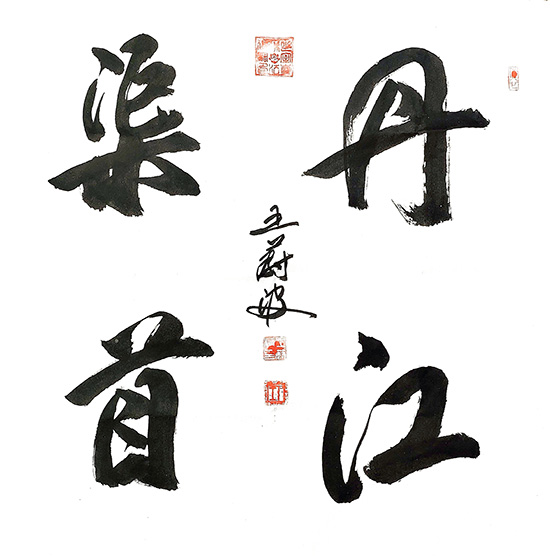 丹江
渠首
王蔚波